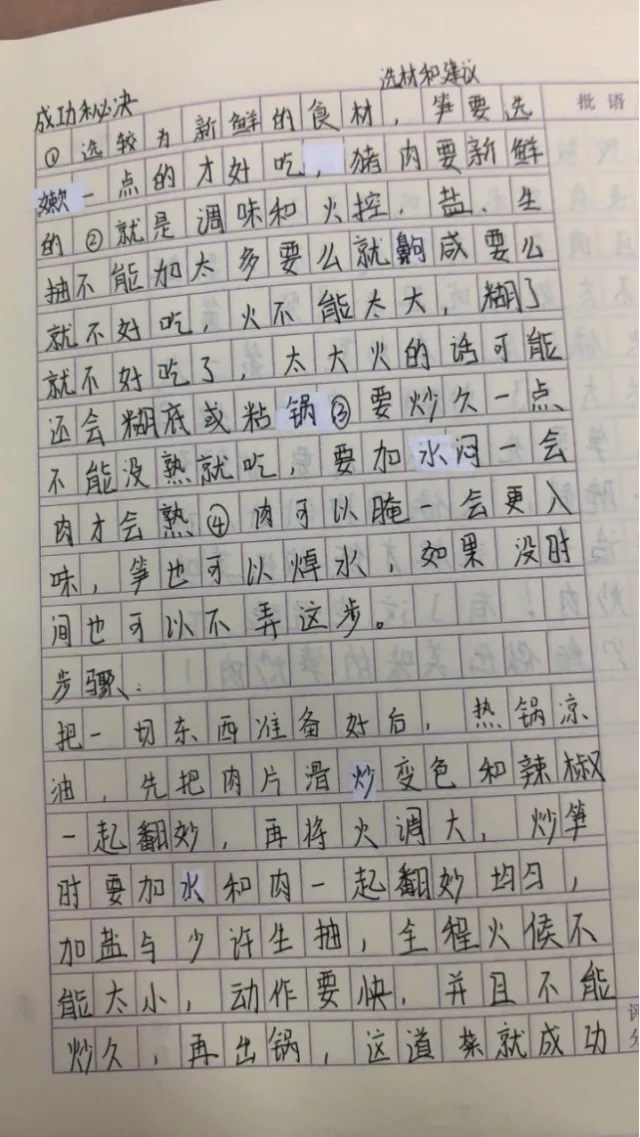 选材和建议
成功秘决
批语
①选较为新鲜的食材，笋要选
嫩一点的才好吃，猪肉要新鲜
的②就是调味和火控，盐、生
抽不能加太多要么就齁咸要么
就不好吃，火不能太大，糊了
就不好吃了，太大火的话可能
还会糊底或粘锅③要炒久一点
不能没熟就吃，要加水闷一会
肉才会熟④肉可以腌一会更入
味，笋也可以焯水，如果没时
间也可以不弄这步。
步骤：
把一切东西准备好后，热锅凉
油，先把肉片滑炒变色和辣椒
一起翻炒，再将火调大，炒笋
时要加水和肉一起翻炒均匀，
加盐与少许生抽，全程火候不
能太小，动作要快，并且不能
炒久，再出锅，这道菜就成功